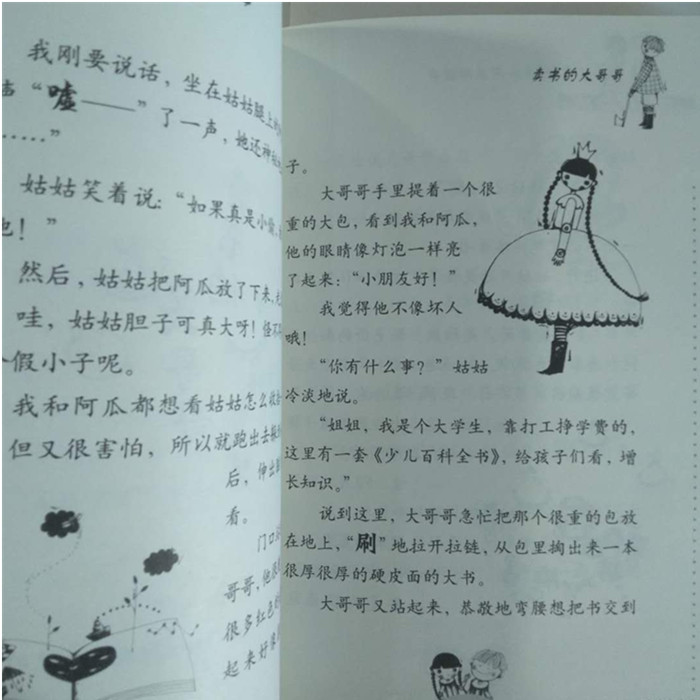 我刚要说话，坐在姑姑腿上的
声“嘘——”了一声，她还神秘
……”
姑姑笑着说：“如果真是小偷，
他！”
然后，姑姑把阿瓜放了下来，
哇，姑姑胆子可真大呀！怪不
假小子呢。
我和阿瓜都想看姑姑怎么
但又很害怕，所以就跑出去
后，伸出
看。
门口
哥哥，他
很多红色
起来好像
卖书的大哥哥
子。
大哥哥手里提着一个很
重的大包，看到我和阿瓜，
他的眼睛像灯泡一样亮
了起来：“小朋友好！”
我觉得他不像坏人
哦！
“你有什么事？”姑姑
冷淡地说。
“姐姐，我是个大学生，靠打工挣学费的，
这里有一套《少儿百科全书》，给孩子们看，增
长知识。”
说到这里，大哥哥急忙把那个很重的包放
在地上，“刷”地拉开拉链，从包里掏出来一本
很厚很厚的硬皮面的大书。
大哥哥又站起来，恭敬地弯腰想把书交到